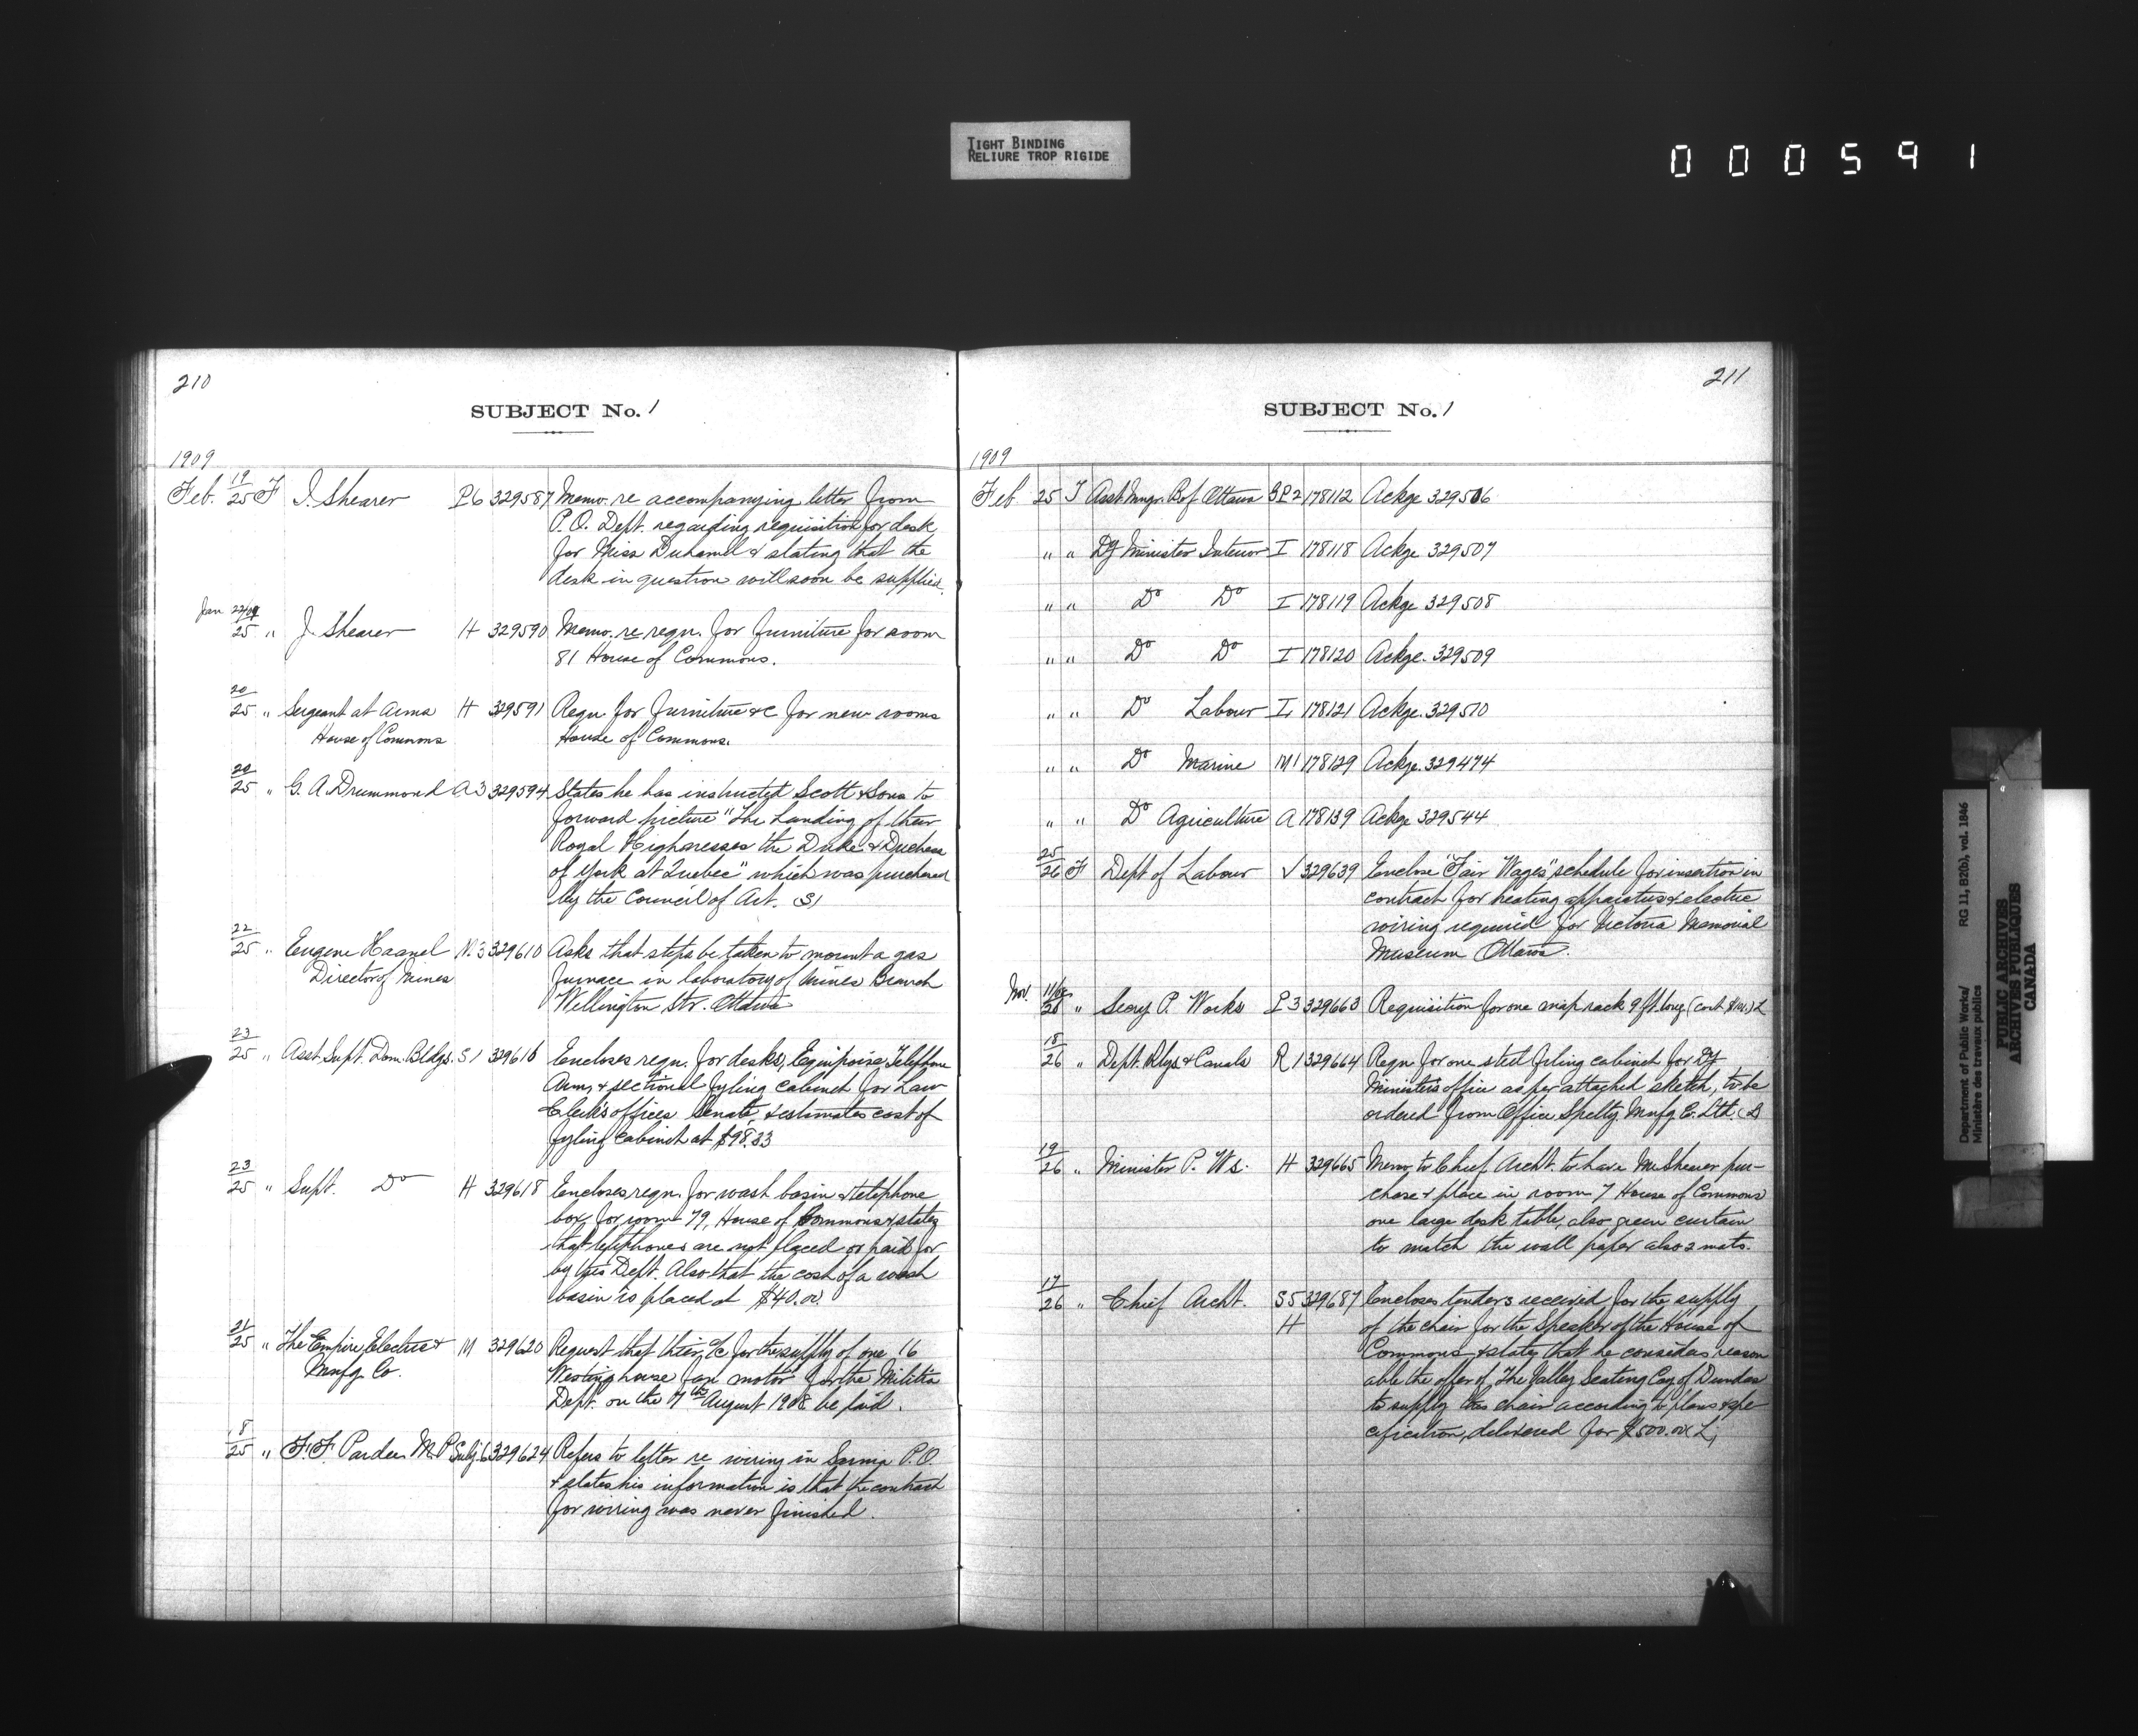 TIGHT BINDING
RELIURE TROP RIGIDE
000591
210
SUBJECT No. 1
1909
Feb. 19/25 F J. Shearer P6 329587 Memo. re accompanying letter from
P.O. Dept. regarding requisition for desk
for Miss Duhamel & stating that the
desk in question will soon be supplied.
Jan 22/09
25 " J. Shearer H 329590 Memo. re reqn. for furniture for room
81 House of Commons.
20/25 " Sergeant at Arms H 329591 Reqn for furniture &c for new rooms
House of Commons House of Commons.
20/25 " G. A. Drummond A3 329594 States he has instructed Scott & Sons to
forward picture "The Landing of their
Royal Highnesses the Duke & Duchess
of York at Quebec" which was purchased
by the Council of Art. S1
22/25 " Eugene Haanel M3 329610 Asks that steps be taken to mount a gas
Director of Mines furnace in laboratory of Mines Branch
Wellington Str. Ottawa
23/25 " Asst. Supt. Dom. Bldgs. S1 329616 Encloses reqn. for desks, Equipoise Telephone
Arm, & sectional fyling cabinet for Law
Clerk's offices Senate & estimates cost of
fyling cabinet at $98.33
23/25 " Supt. Do H 329618 Encloses reqn. for wash basin & telephone
box for room 79, House of Commons & states
that telephones are not placed or paid for
by this Dept. Also that the cost of a wash
basin is placed at $40.00.
21/25 " The Empire Electric & M 329620 Request that their a/c for the supply of one 16
Mnfg. Co. Westinghouse fan motor for the Militia
Dept. on the 7th August 1908 be paid.
18/25 " F. F. Pardee M.P. Subj. 6 329624 Refers to letter re wiring in Sarnia P.O.
& states his information is that the contract
for wiring was never finished.
211
SUBJECT No. 1
1909
Feb 25 T Asst. Mngr. B of Ottawa SP2 178112 Ackge 329506
" " Dy Minister Interior I 178118 Ackge 329507
" " Do Do I 178119 Ackge 329508
" " Do Do I 178120 Ackge. 329509
" " Do Labour L 178121 Ackge. 329510
" " Do Marine M1 178129 Ackge. 329474
" " Do Agriculture A 178139 Ackge 329544
25/26 F Dept of Labour V 329639 Enclose "Fair Wages" schedule for insertion in
contract for heating apparatus & electric
wiring required for Victoria Memorial
Museum Ottawa.
Nov. 11/08
26 " Secry P. Works P3 329663 Requisition for one map rack 9 ft. long
18/26 " Dept. Rlys & Canals R1 329664 Reqn for one steel filing cabinet for Dy
Minister's office as per attached sketch, to be
ordered from Office Spclty Mnfg Co. Ltd.
19/26 " Minister P. Wks. H 329665 Memo to Chief Archt. to have Mr Shearer pur-
chase & place in room 7 House of Commons
one large desk table, also green curtain
to match the wall paper also 2 mats.
17/26 " Chief Archt. S5 329687 Encloses tenders received for the supply
H of the chair for the Speaker of the House of
Commons & states that he considers reason
able the offer of The Valley Seating Coy of Dundas
to supply this chair according to plans & spe
cification, delivered for $500.00
Department of Public Works/ RG 11, B2(b), vol. 1846
Ministère des travaux publics
PUBLIC ARCHIVES
ARCHIVES PUBLIQUES
CANADA